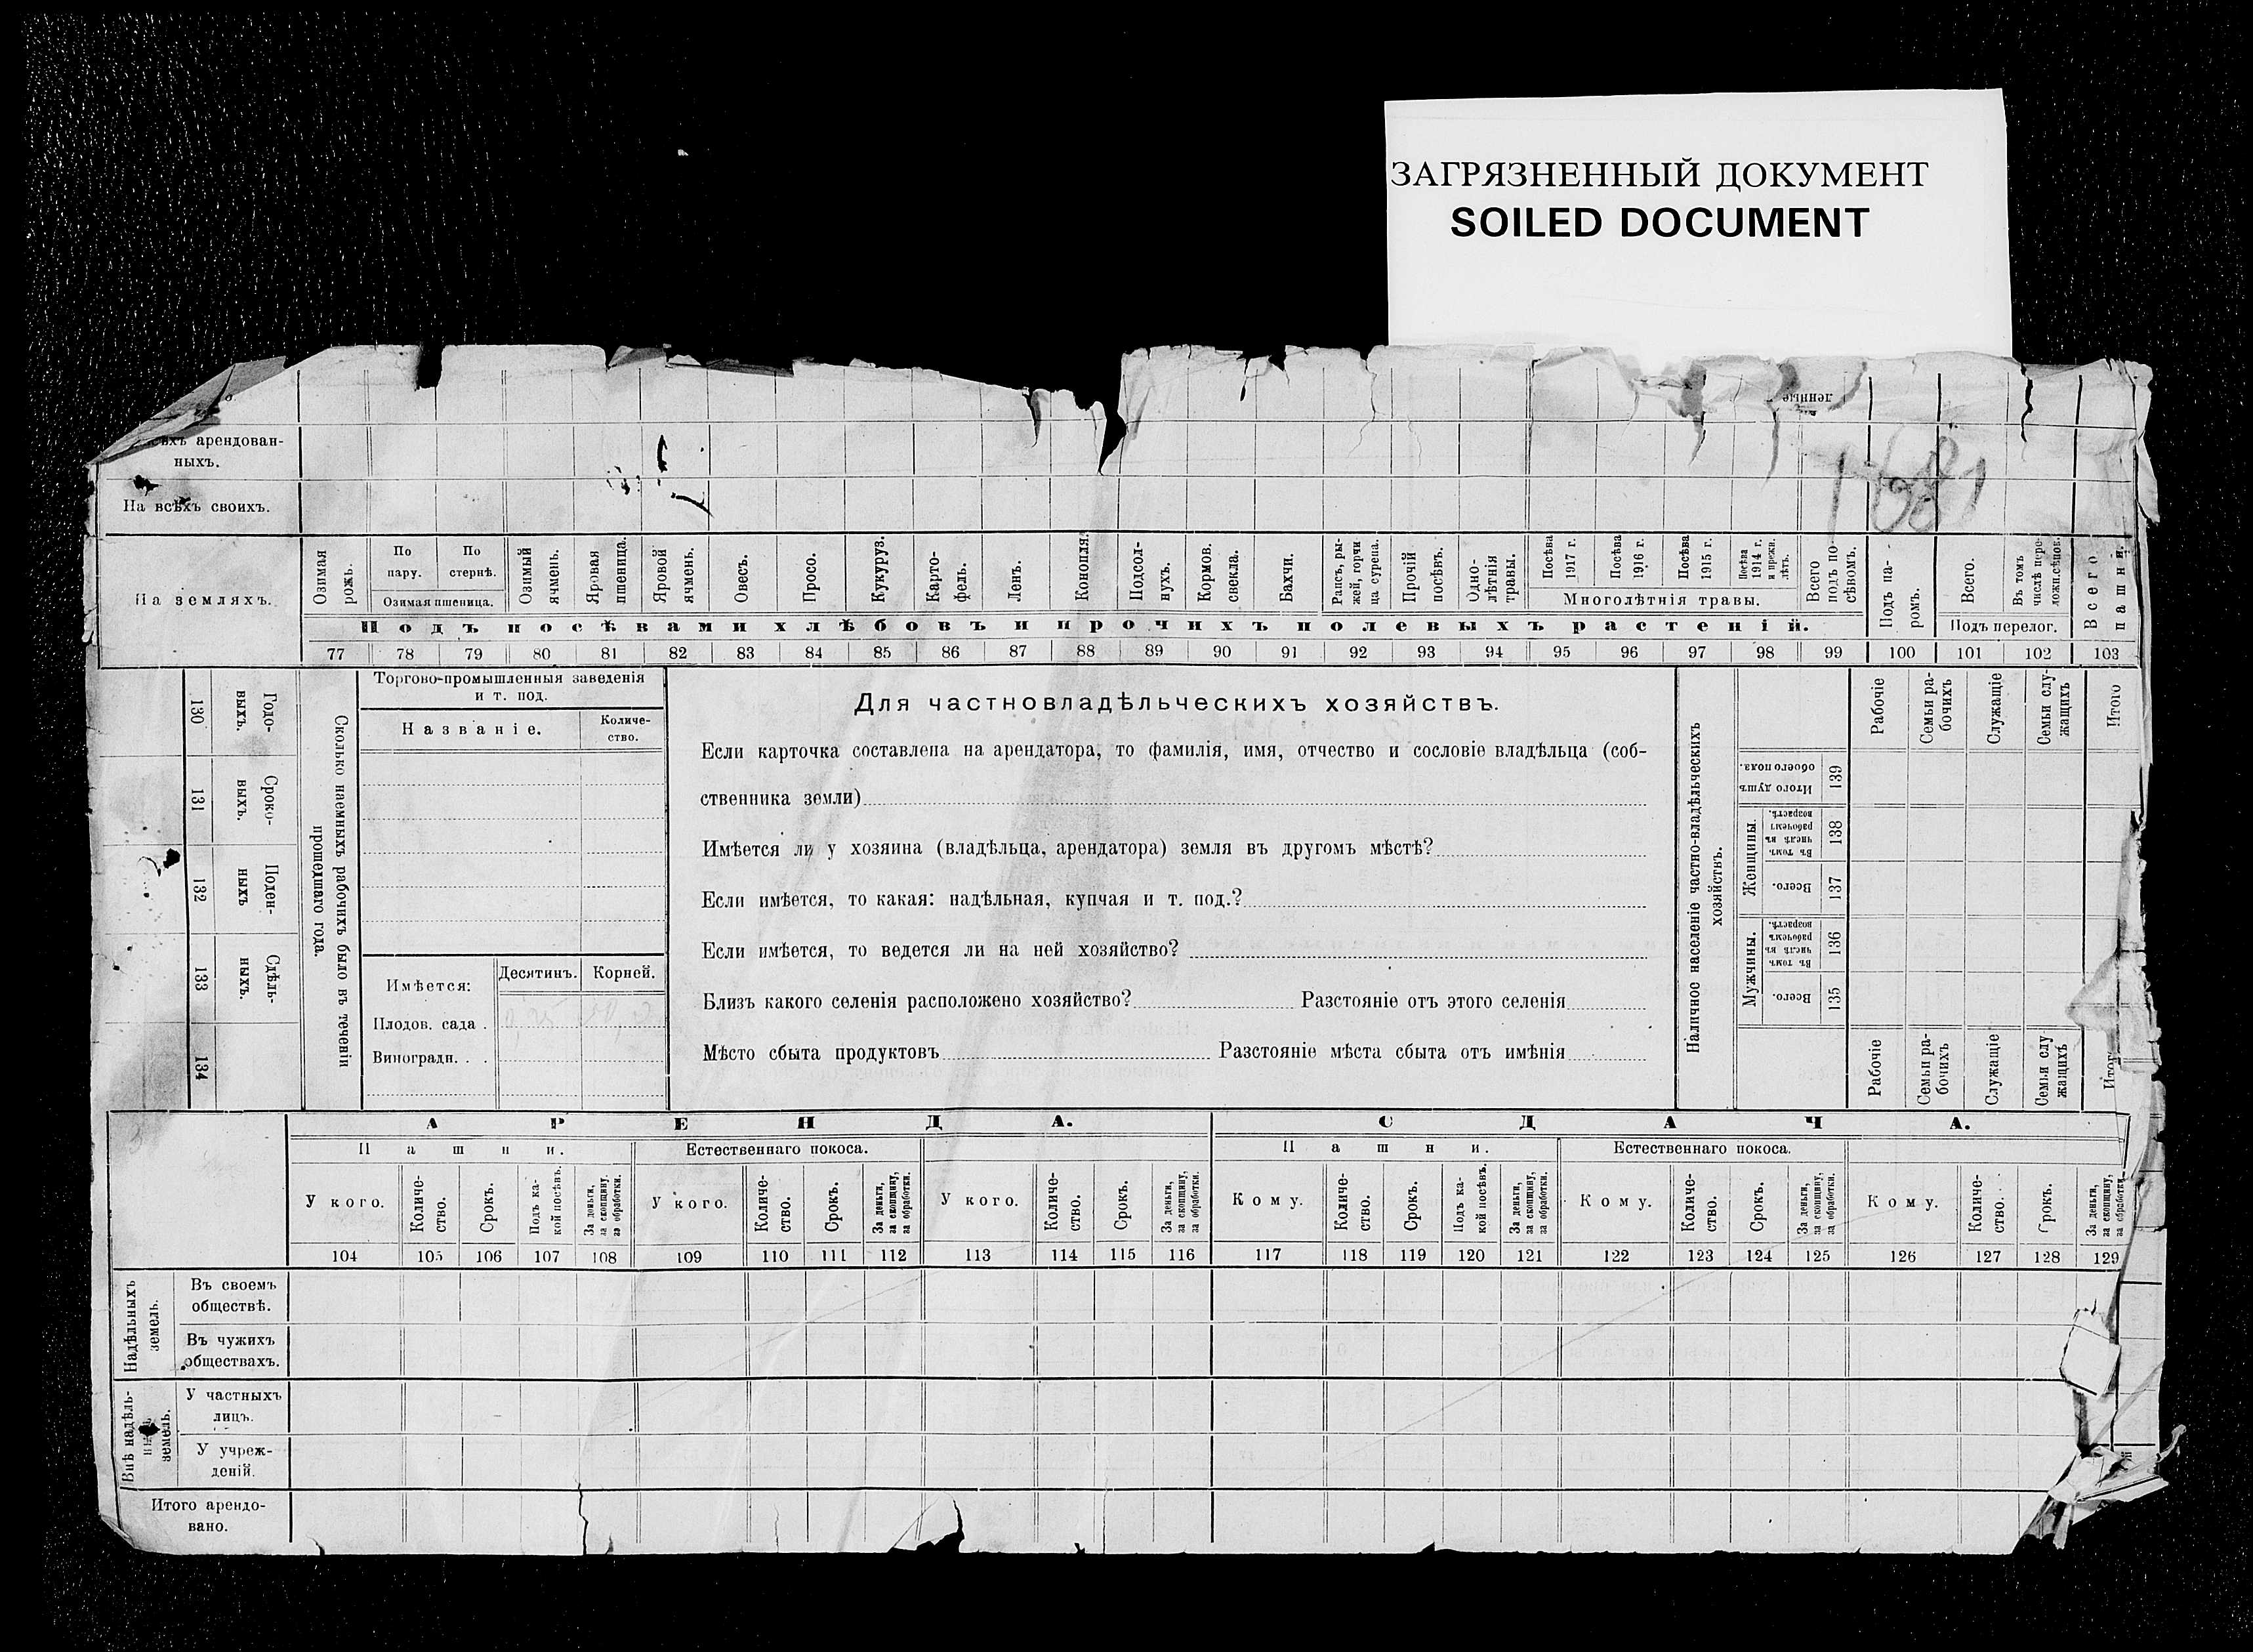 ЗАГРЯЗНЕННЫЙ ДОКУМЕНТ
SOILED DOCUMENT
арендован-
ныхъ.
На всѣхъ своихъ.
На земляхъ.
Озимая рожь.
По пару.
По стернѣ.
Озимая пшеница.
Озимый ячмень.
Яровая пшеница.
Яровой ячмень.
Овесъ.
Просо.
Кукуруз.
Карто-
фель.
Ленъ.
Конопля.
Подсол-
нухъ.
Кормов. свекла.
Бахчи.
Рапсъ, ры-
жей, горчи
ца сурепа.
Прочій посѣвъ.
Одно-
лѣтнія
травы.
Посѣва 1917 г.
Посѣва 1916 г.
Посѣва 1915 г.
Посѣва 1914 г. и прежн. лѣтъ.
Многолѣтнія травы.
Всего подъ по-
сѣвомъ.
Подъ па-
ромъ.
Всего.
Въ томъ числѣ пере-
ложн.сѣнок.
Подъ перелог.
Всего пашни.
Подъ посѣвами хлѣбовъ и прочихъ полевыхъ растеній.
77 78 79 80 81 82 83 84 85 86 87 88 89 90 91 92 93 94 95 96 97 98 99 100 101 102 103
130 Годо-
выхъ.
131 Сроко-
выхъ.
132 Поден-
ныхъ
133 Сдѣль-
ныхъ.
134
Сколько наемныхъ рабочихъ было въ теченіи
прошедшаго года.
Торгово-промышленныя заведенія
и т. под.
Названіе.
Количе-
ство.
Имѣется:
Десятинъ.
Корней.
Плодов. сада .
Виноградн. . .
Для частновладѣльческихъ хозяйствъ.
Если карточка составлена на арендатора, то фамилія, имя, отчество и сословіе владѣльца (соб-
ственника земли)
Имѣется ли у хозяина (владѣльца, арендатора) земля въ другомъ мѣстѣ?
Если имѣется, то какая: надѣльная, купчая и т. под.?
Если имѣется, то ведется ли на ней хозяйство?
Близъ какого селенія расположено хозяйство? Разстояніе отъ этого селенія
Мѣсто сбыта продуктовъ Разстояніе мѣста сбыта отъ имѣнія
Наличное населеніе частно-владѣльческихъ
хозяйствъ.
Рабочіе
Семьи ра-
бочихъ
Служащіе
Семьи слу-
жащихъ
Итого
Итого душъ обоего пола. 139
Женщины.
Въ томъ числѣ въ рабочемъ возрастѣ. 138
Всего. 137
Мужчины.
Въ томъ числѣ въ рабочемъ возрастѣ. 136
Всего. 135
Рабочіе
Семьи ра-
бочихъ
Служащіе
Семьи слу
жащихъ
АРЕНДА.
СДАЧА.
Пашни.
Естественнаго покоса.
Пашни.
Естественнаго покоса.
У кого.
Количе-
ство.
Срокъ.
Подъ ка-
кой посѣвъ.
За деньги,
за скопщину,
за обработки.
У кого.
Количе-
ство.
Срокъ.
За деньги,
за скопщину,
за обработки.
У кого.
Количе-
ство.
Срокъ.
За деньги,
за скопщину,
за обработки.
Кому.
Количе-
ство.
Срокъ.
Подъ ка-
кой посѣвъ.
За деньги,
за скопщину,
за обработки.
Кому.
Количе-
ство.
Срокъ.
За деньги,
за скопщину,
за обработки.
Кому.
Количе-
ство.
Срокъ.
За деньги,
за скопщину,
за обработки.
104 105 106 107 108 109 110 111 112 113 114 115 116 117 118 119 120 121 122 123 124 125 126 127 128 129
Надѣльныхъ
земель.
Въ своемъ
обществѣ.
Въ чужихъ
обществахъ.
Внѣ надѣль-
земель.
У частныхъ
лицъ.
У учреж-
деній.
Итого арендо-
вано.